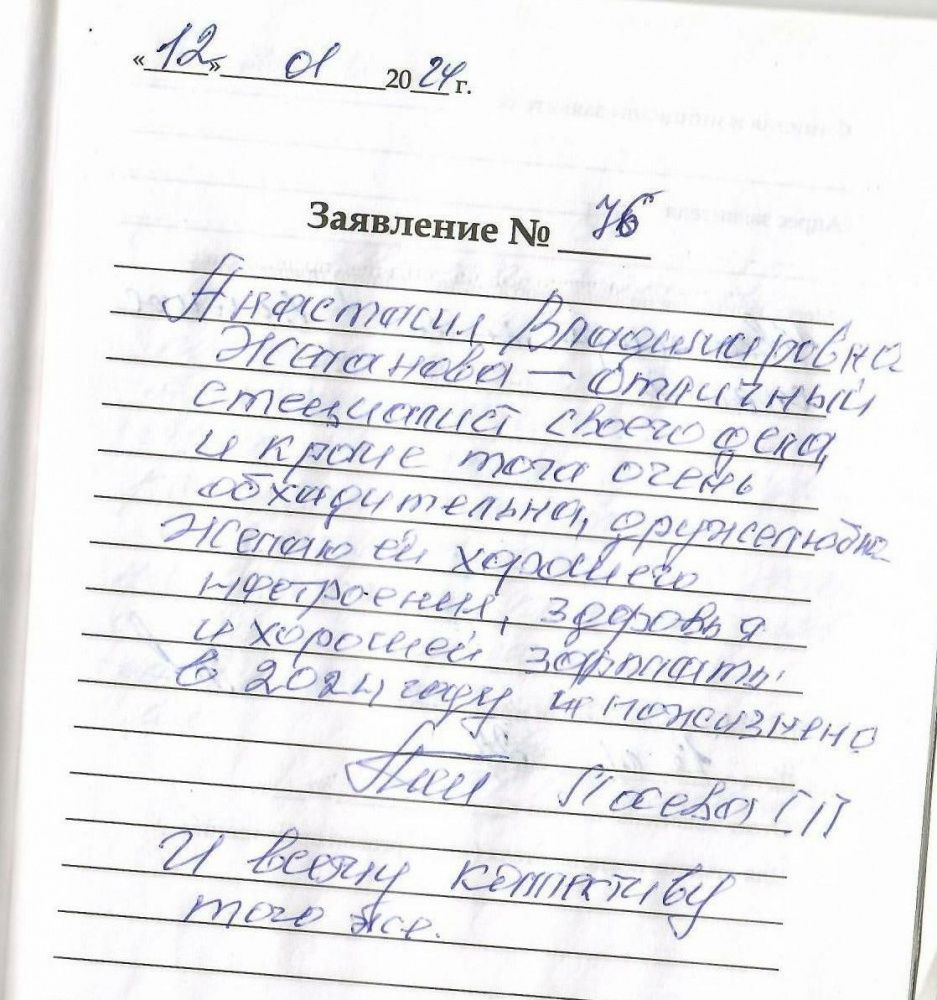 «12» 01 2024 г.
Заявление № 76
Анастасия Владимировна
Жепанова – отличный
специалист своего дела,
и кроме того очень
обходительна, дружелюбна
Желаю ей хорошего
настроения, здоровья
и хорошей зарплаты
в 2024 году и пожизнено
Носева ГП
И всему коллективу
того же.